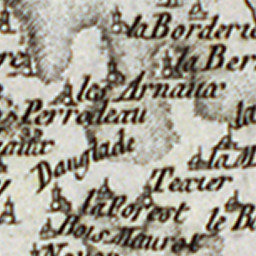 la Borderie
la Ber
les Arnaux
Perrodeau
Dauglade
la M
Texier
la Forest
le Bo
Bois Maurot